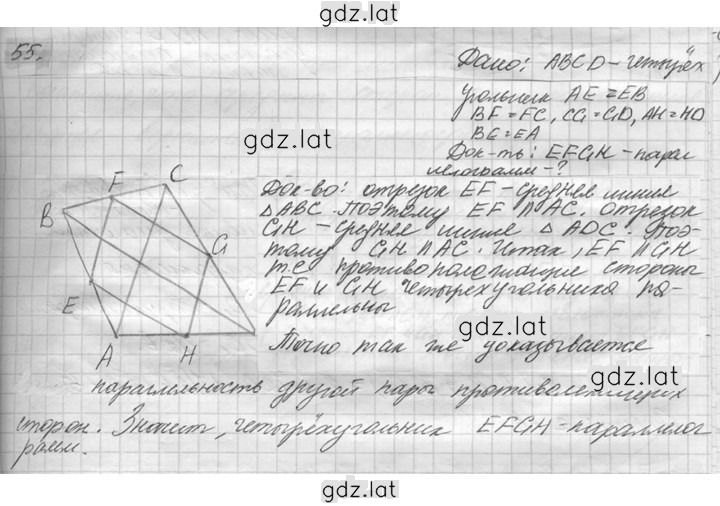 gdz.lat
55.
Дано: ABCD – четырёх
угольник AE = EB
BF = FC, CG = GD, AH = HD
BE = EA
gdz.lat
Док-ть: EFGH – парал
лелограмм – ?
Док-во: отрезок EF – средняя линия
△ABC. Поэтому EF ∥ AC. Отрезок
GH – средняя линия △ADC. Поэ-
тому GH ∥ AC. Итак, EF ∥ GH
т.е противоположные стороны
EF и GH четырехугольника па-
раллельны
B
F
C
G
E
A
H
gdz.lat
Точно так же доказывается
gdz.lat
параллельность другой пары противолежащих
сторон. Значит, четырёхугольник EFGH – параллелог
рамм.
gdz.lat